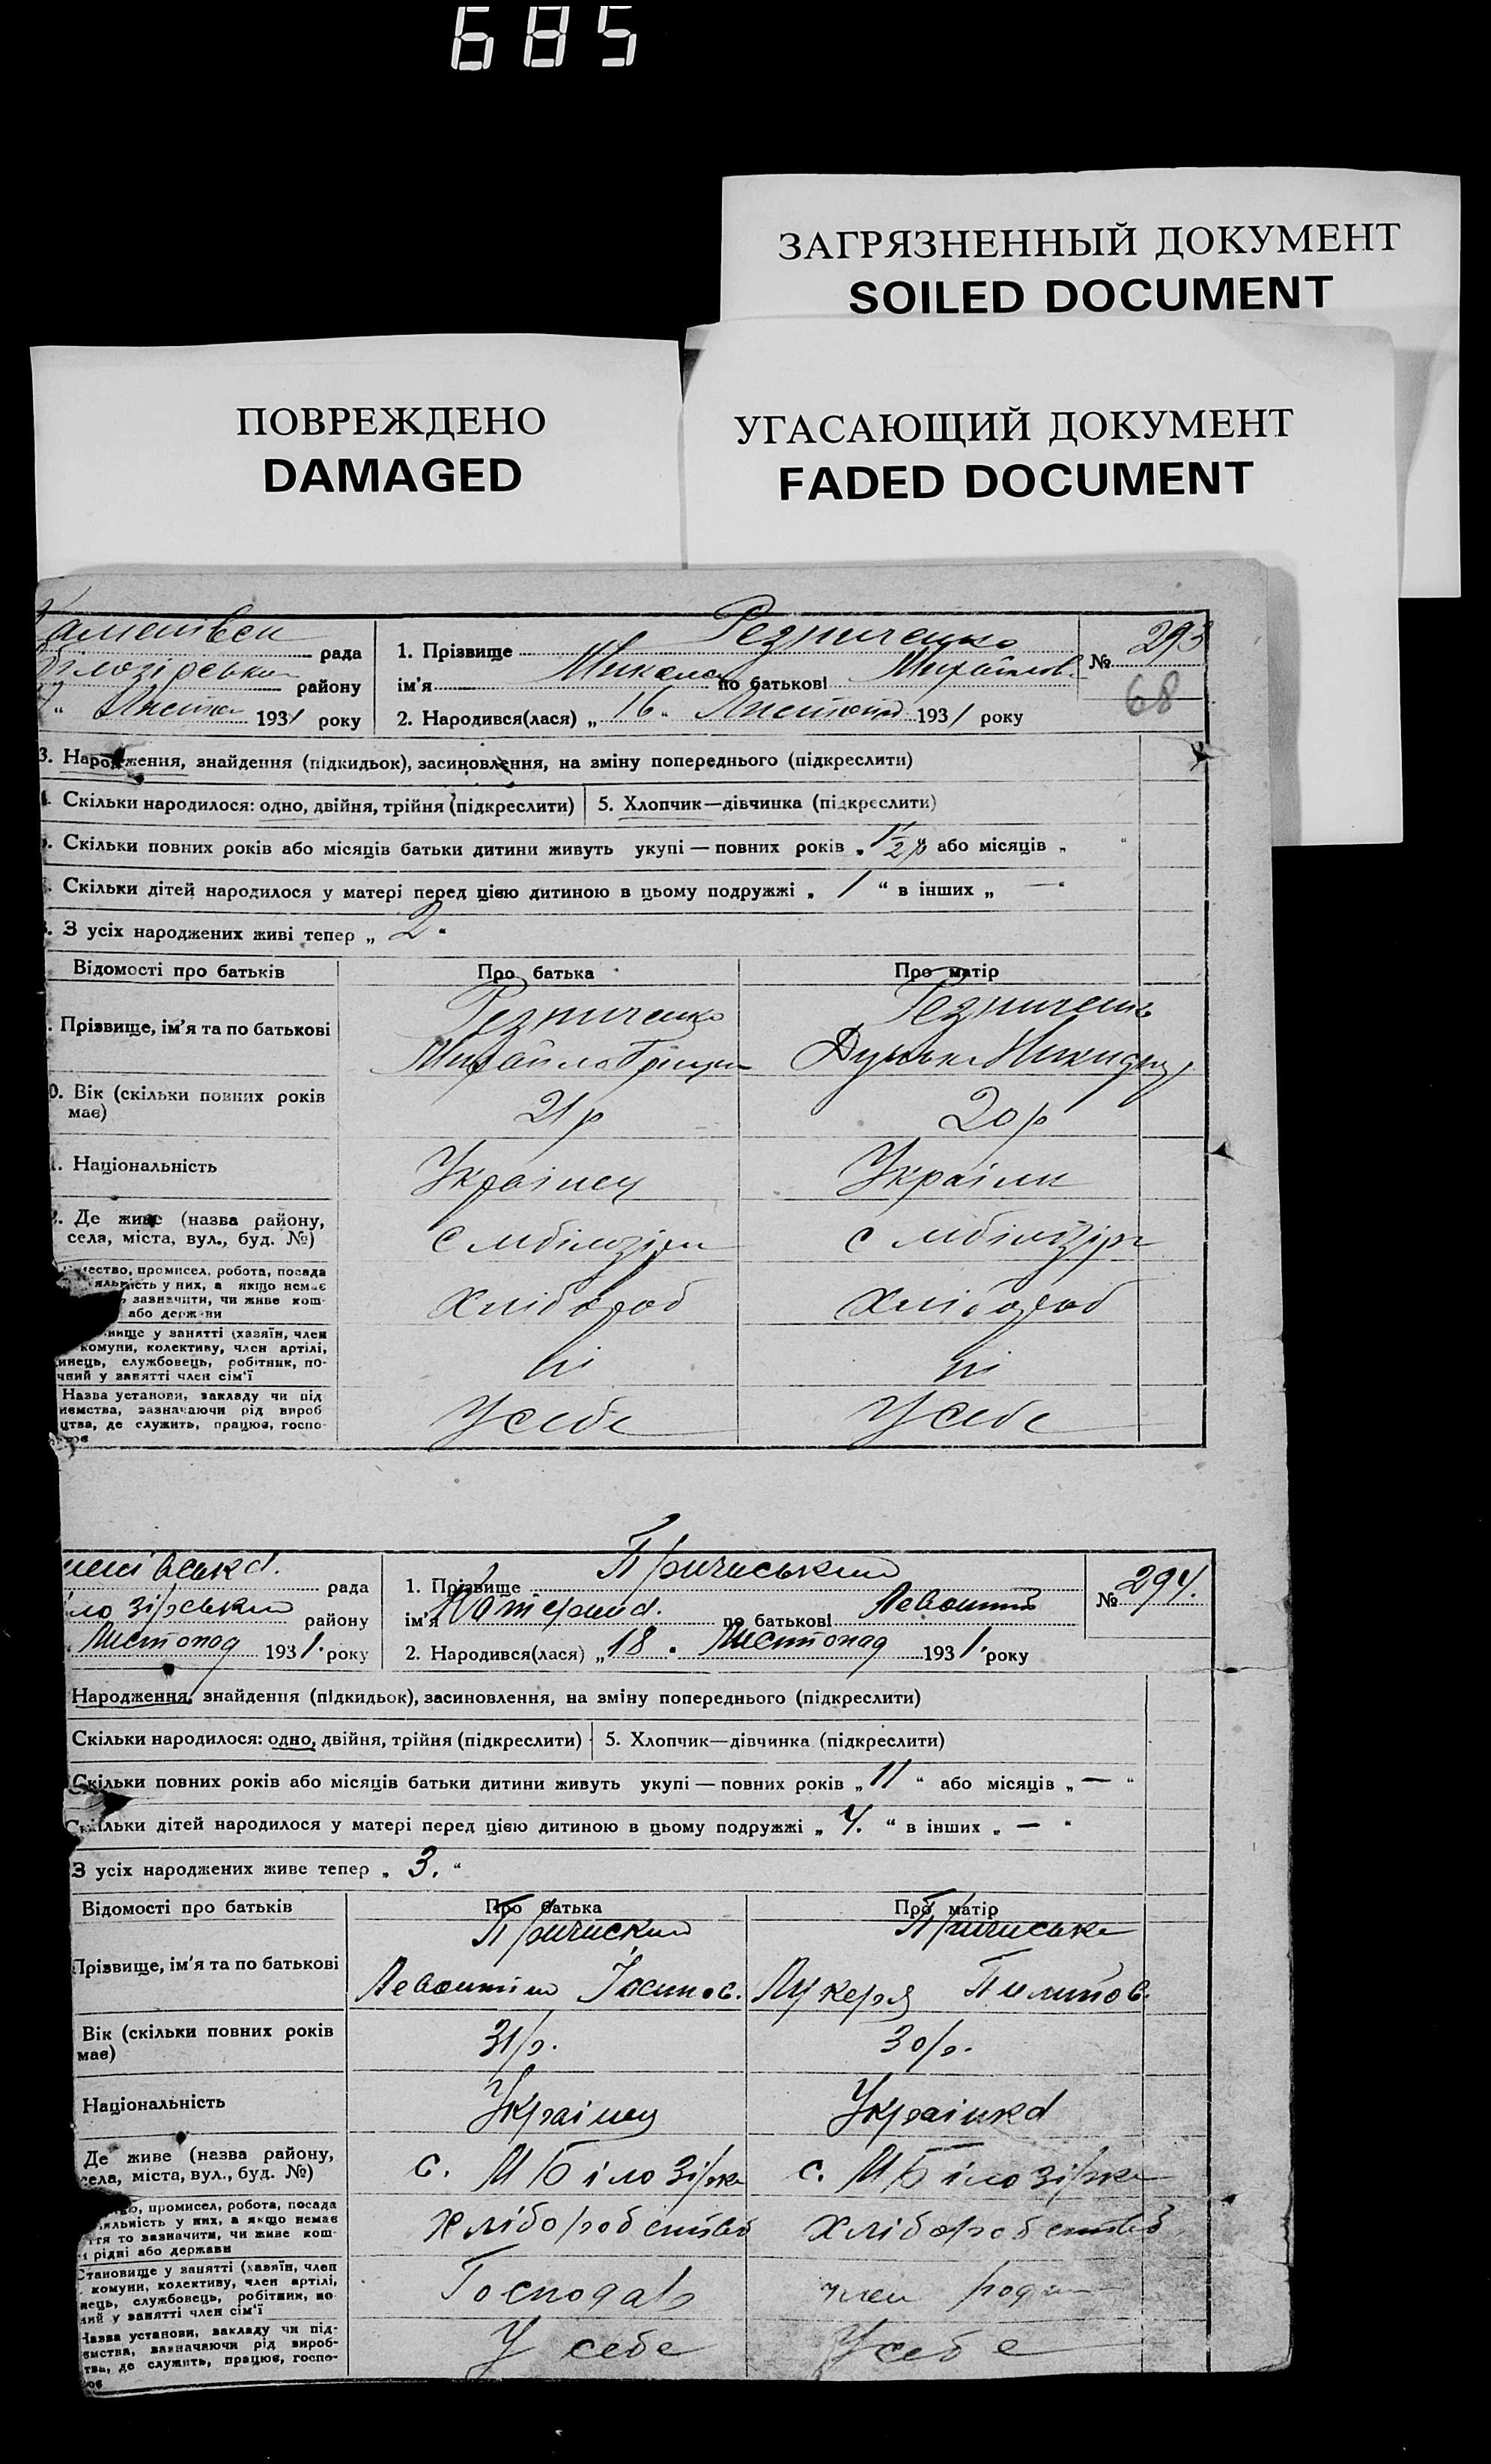 685
ЗАГРЯЗНЕННЫЙ ДОКУМЕНТ
SOILED DOCUMENT
ПОВРЕЖДЕНО
DAMAGED
УГАСАЮЩИЙ ДОКУМЕНТ
FADED DOCUMENT
рада
району
1931 року
1. Прізвище Резниченко
ім'я Микола по батькові Михайлов.
2. Народився(лася) „ 16 " Листопад 1931 року
№ 293
68
3. Народження, знайдення (підкидьок), засиновлення, на зміну попереднього (підкреслити)
Скільки народилося: одно, двійня, трійня (підкреслити) 5. Хлопчик—дівчинка (підкреслити)
Скільки повних років або місяців батьки дитини живуть укупі — повних років „ 1 1/2 р або місяців „ "
Скільки дітей народилося у матері перед цією дитиною в цьому подружжі „ 1 " в інших „ — "
З усіх народжених живі тепер „ 2 "
Відомості про батьків Про батька Про матір
Прізвище, ім'я та по батькові
Резниченко
Михайло
Резниченк
0. Вік (скільки повних років має) 21 р 20 р
Національність Українец Україн
Де живе (назва району, села, міста, вул., буд. №) с мбілозірк с мбілозірк
промисел, робота, посада
у них, а якщо немає
зазначити, чи живе кош-
або держави
Хлібороб Хлібороб
у занятті (хазяїн, член
комуни, колективу, член артілі,
службовець, робітник, по-
у занятті член сім'ї
ні ні
Назва установи, закладу чи під
зазначаючи рід вироб
де служить, працює, госпо-
У себе У себе
рада
району
Листопад 1931. року
1. Прізвище
ім'я Катерина. по батькові
2. Народився(лася) „ 18 " Листопад 1931. року
№ 294.
Народження, знайдення (підкидьок), засиновлення, на зміну попереднього (підкреслити)
Скільки народилося: одно, двійня, трійня (підкреслити) 5. Хлопчик—дівчинка (підкреслити)
Скільки повних років або місяців батьки дитини живуть укупі — повних років „ 11 " або місяців „ — "
Скільки дітей народилося у матері перед цією дитиною в цьому подружжі „ 4. " в інших „ — "
З усіх народжених живе тепер „ 3. "
Відомості про батьків Про батька Про матір
Прізвище, ім'я та по батькові
Лукеря Пилипов.
Вік (скільки повних років має) 31 р. 30 р.
Національність Українец Українка
Де живе (назва району, села, міста, вул., буд. №) с. М Білозірка с. М Білозірка
промисел, робота, посада
у них, а якщо немає
то зазначити, чи живе кош-
рідні або держави
Хліборобство Хліборобство
Становище у занятті (хазяїн, член
комуни, колективу, член артілі,
службовець, робітник, по-
у занятті член сім'ї
Господар член родин
Назва установи, закладу чи під-
зазначаючи рід вироб-
де служить, працює, госпо-
У себе У себе